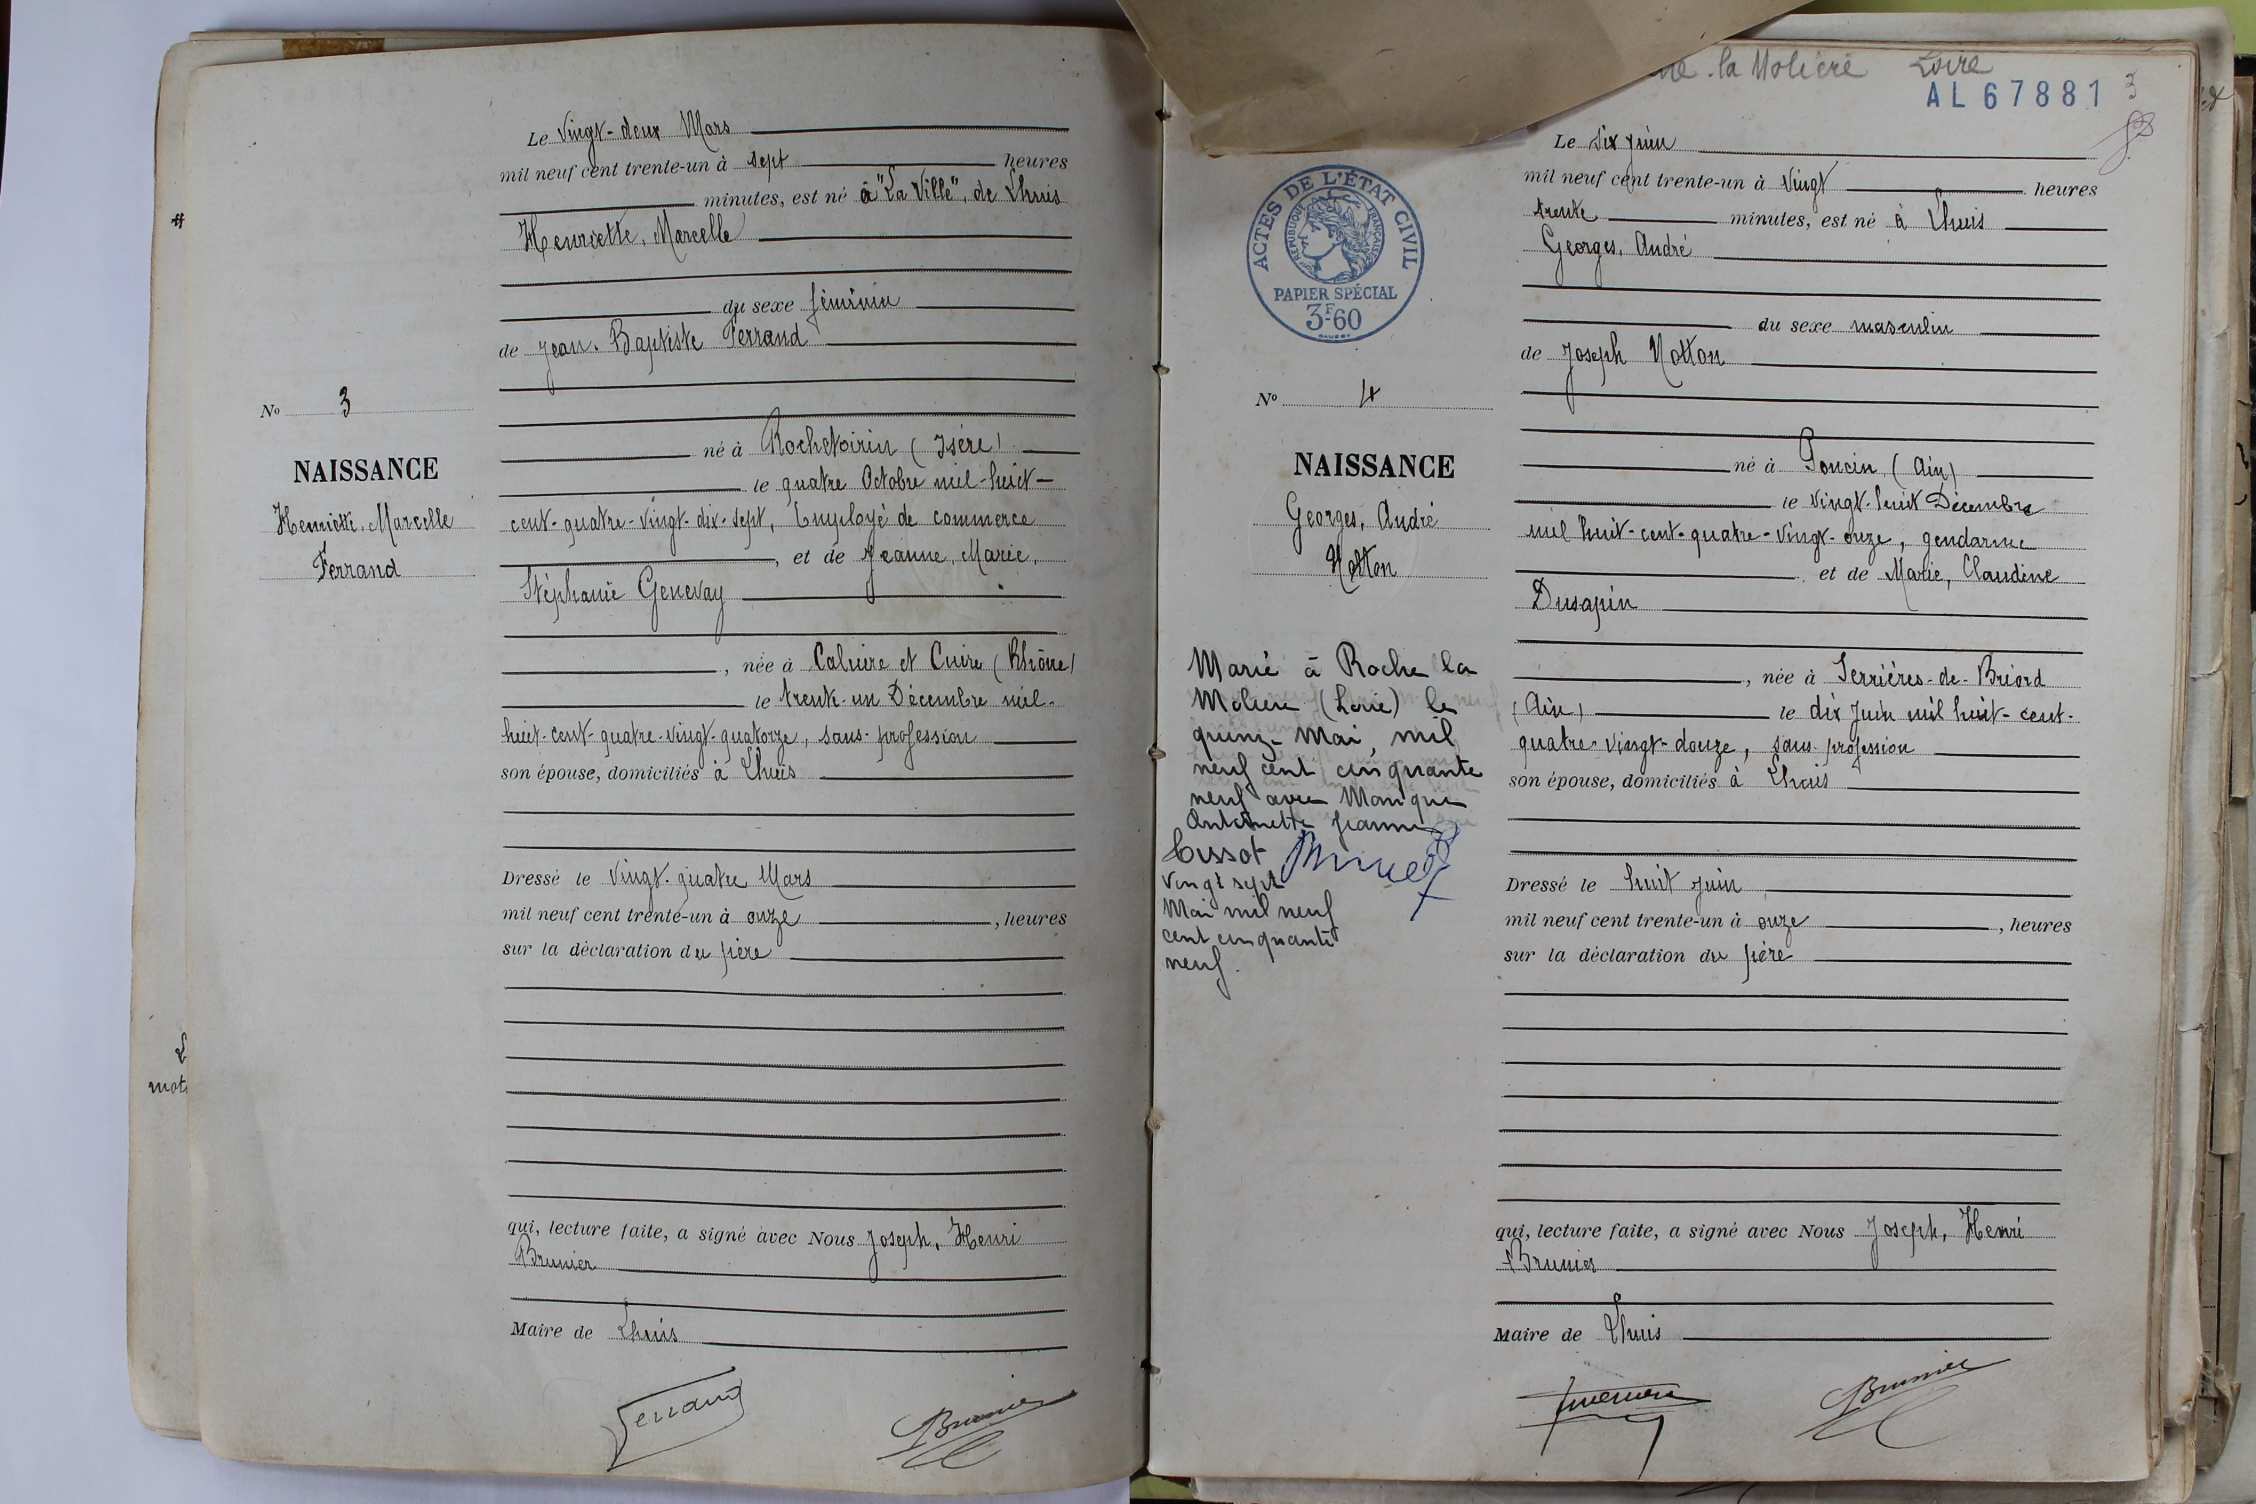 Le vingt-deux Mars
mil neuf cent trente-un à sept heures
minutes, est né à "La Ville", de Lhuis
Henriette, Marcelle
du sexe féminin
de Jean-Baptiste Ferrand
né à Rochetoirin (Isère)
le quatre Octobre mil-huit-
cent-quatre-vingt-dix-sept, Employé de commerce
, et de Jeanne, Marie,
Stéphanie Genevay
, née à Caluire et Cuire (Rhône)
le trente-un Décembre mil-
huit-cent-quatre-vingt-quatorze, sans profession
son épouse, domiciliés à Lhuis
Dressé le vingt-quatre Mars
mil neuf cent trente-un à onze , heures
sur la déclaration du père
qui, lecture faite, a signé avec Nous Joseph, Henri
Brunier
Maire de Lhuis
Ferrand
Brunier
No 3
NAISSANCE
Henriette, Marcelle
Ferrand
mots
la Molière Loire
AL 67881
3
ACTES DE L'ÉTAT CIVIL
RÉPUBLIQUE FRANÇAISE
PAPIER SPÉCIAL
3F.60
No 4
NAISSANCE
Georges, André
Notton
Marié à Roche la
Molière (Loire) le
quinze Mai, mil
neuf cent cinquante
neuf avec Monique
Antoinette Jeanne
Cissot
vingt sept
Mai mil neuf
cent cinquante
neuf.
Le six juin
mil neuf cent trente-un à vingt heures
trente minutes, est né à Lhuis
Georges, André
du sexe masculin
de Joseph Notton
né à Poncin (Ain)
le vingt-huit Décembre
mil huit-cent-quatre-vingt-onze, gendarme
et de Marie, Claudine
Dusapin
, née à Serrières-de-Briord
(Ain) le dix Juin mil huit-cent-
quatre-vingt-douze, sans profession
son épouse, domiciliés à Lhuis
Dressé le huit juin
mil neuf cent trente-un à onze , heures
sur la déclaration du père
qui, lecture faite, a signé avec Nous Joseph, Henri
Brunier
Maire de Lhuis
Brunier